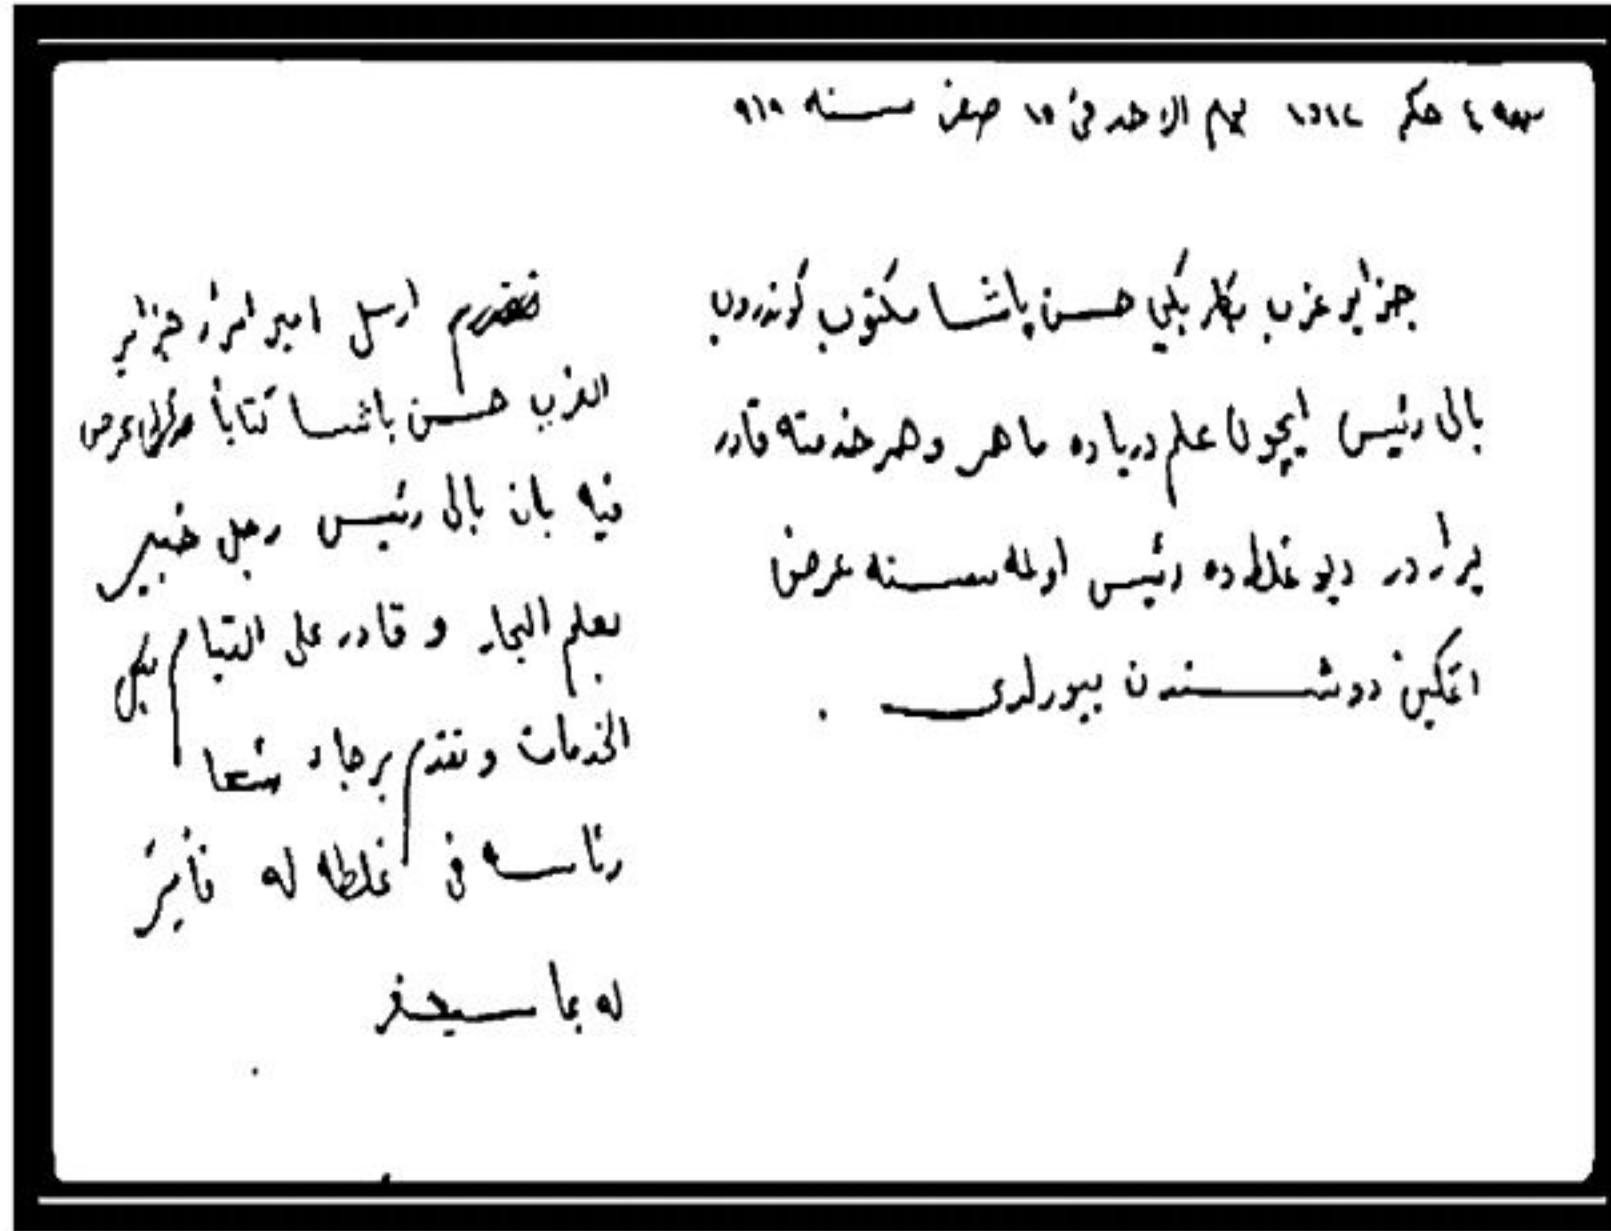 حكم ١٥١٢ يوم الاحد في ١٥ صفر سنه
جزاير غرب بكلر بكي حسن پاشا مكتوب كوندروب
بالى رئيس ايچون علم درياده ماهر و هر خدمته قادر
يراردر ديو غلطه ده رئيس اولمه سنه عرض
اتمكين ددشندن بيورلدى .
ارسل امير امراء جزاير
الغرب حسن باشا كتاباً عرض
فيه بان بالى رئيس رجل خبير
بعلم البحار و قادر على القيام بكل
الخدمات و تقدم برجاء
رئاسه في غلطه له
له بما